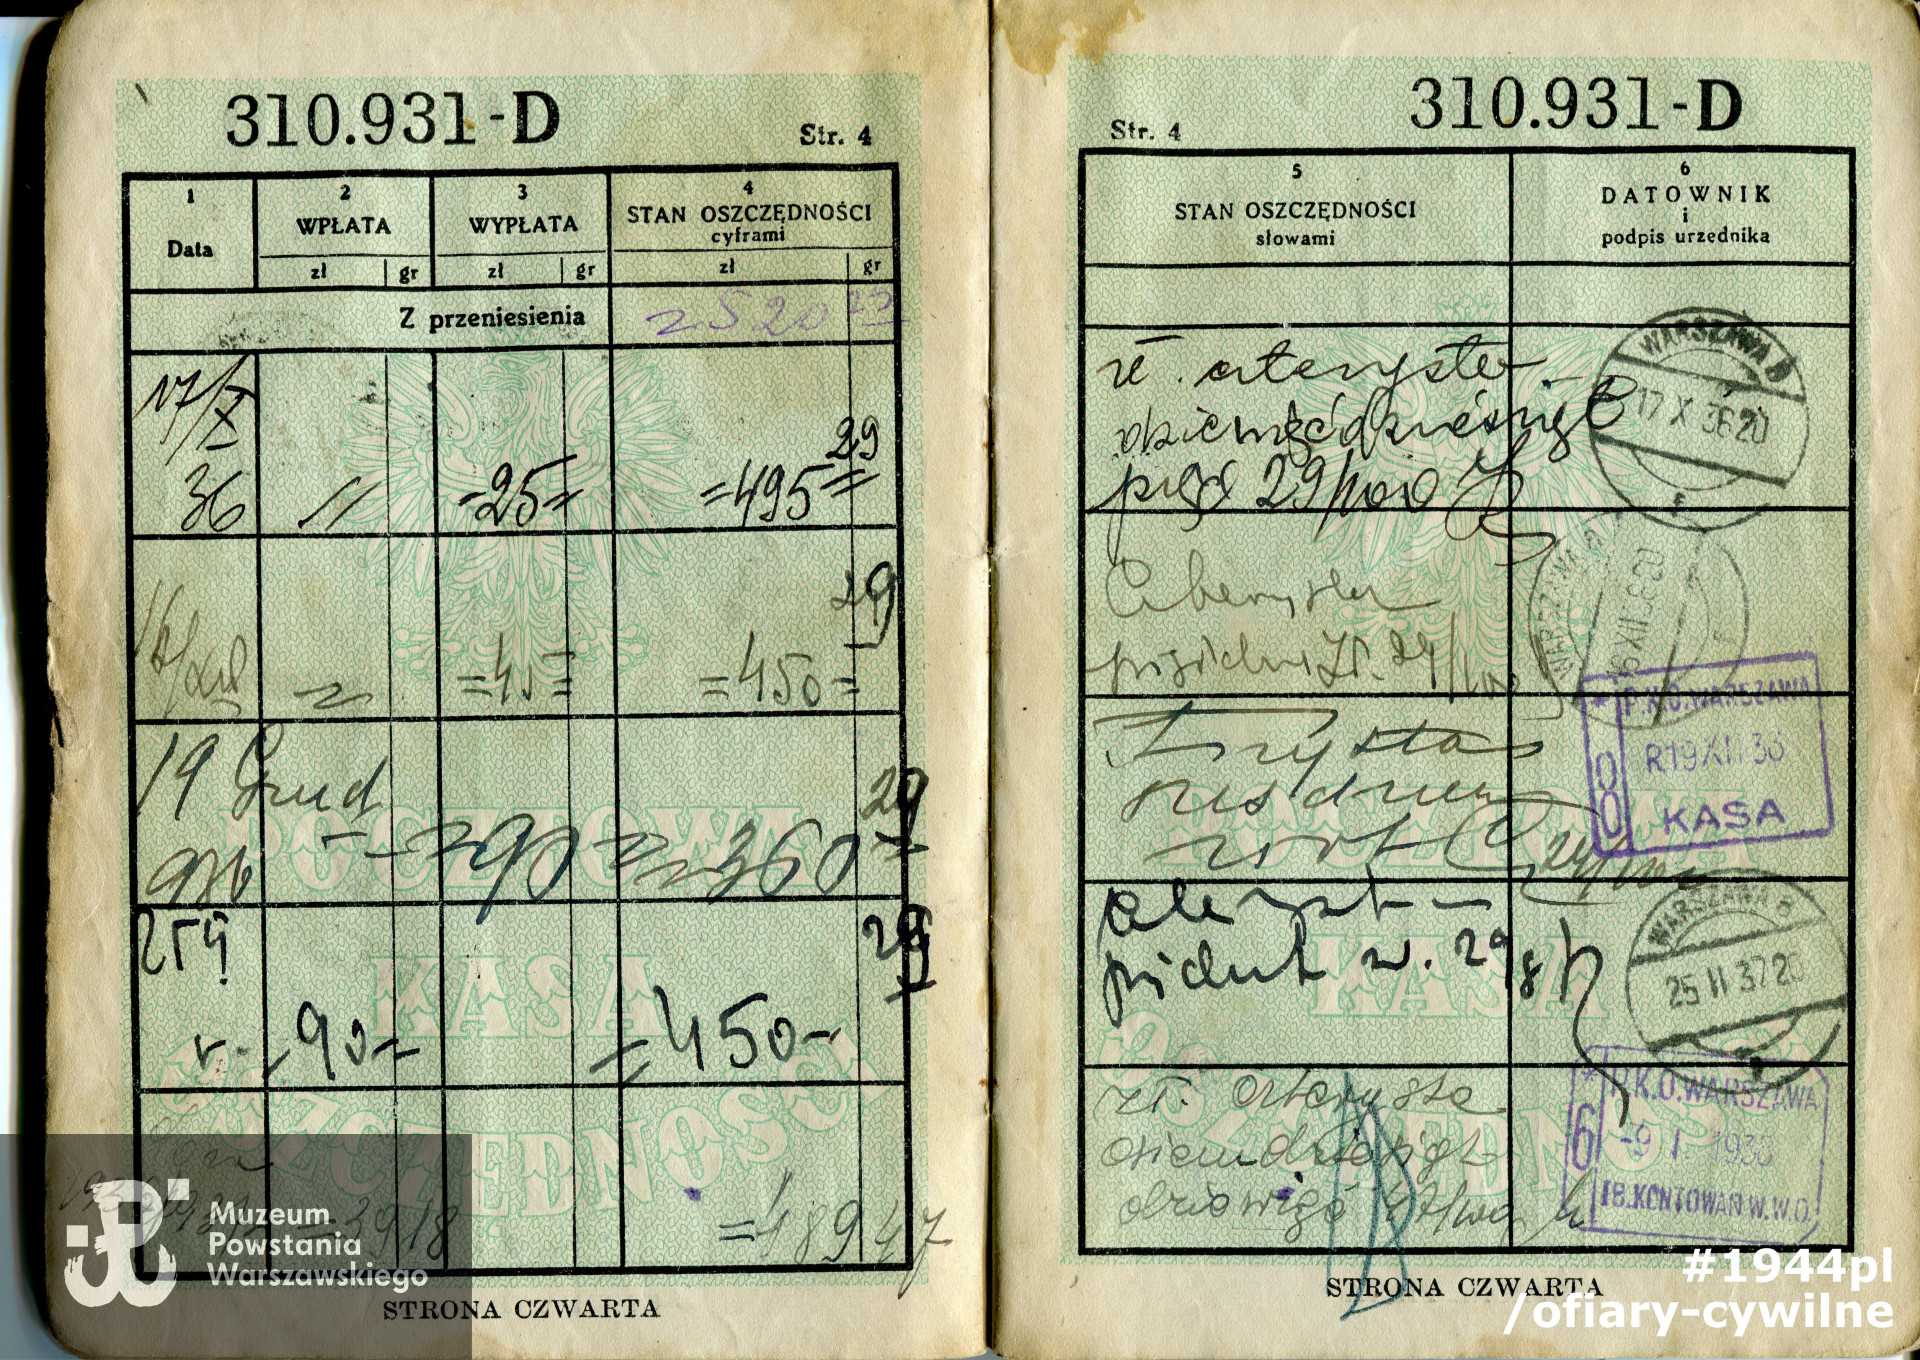 310.931-D
Str. 4
1
Data
2
WPŁATA
zł gr
3
WYPŁATA
zł gr
4
STAN OSZCZĘDNOŚCI
cyframi
zł gr
Z przeniesienia
=520
17/X
36
=25=
=495=
29
16/XII
=45=
=450=
29
19 Grud
936
=90=
=360
29
25/II
-90-
=450-
29
=3918
=489 47
POCZTOWA
KASA
OSZCZĘDNOŚCI
STRONA CZWARTA
Muzeum
Powstania
Warszawskiego
310.931-D
Str. 4
5
STAN OSZCZĘDNOŚCI
słowami
6
DATOWNIK
i
podpis urzędnika
zł. czterysta
dziewięćdziesiąt
pięć 29/100
WARSZAWA
17 X 36 20
Czterysta
pięćdzies. zł. 29/100
WARSZAWA
16 XII 36 20
Trzysta
sześćdzies
29/100
* P.K.O. WARSZAWA
R19 XII 36
KASA
czteryst
29
WARSZAWA
25 II 37 20
zł. czterysta
osiemdziesiąt
dziewięć 47/100
* P.K.O. WARSZAWA
6
-9 I 1938
18. KONTOWAŃ W.W.O.
POCZTOWA
KASA
STRONA CZWARTA
#1944pl
/ofiary-cywilne